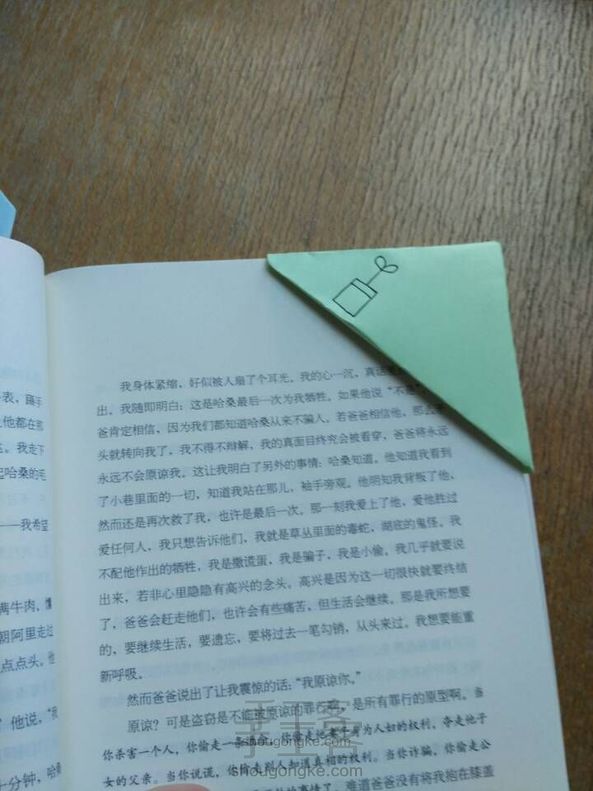 表，踢手
么他都在那
。我走下
起哈桑的毛
——我希望
满牛肉，
朝阿里走过
点点头。他
他说，“我
十分钟，哈
我身体紧缩，好似被人扇了个耳光。我的心一沉，真话
出。我随即明白：这是哈桑最后一次为我牺牲。如果他说“不是”
爸肯定相信，因为我们都知道哈桑从来不骗人。若爸爸相信他，那么
头就转向我了，我不得不辩解，我的真面目终究会被看穿，爸爸将永远
永远不会原谅我。这让我明白了另外的事情：哈桑知道。他知道我看到
了小巷里面的一切，知道我站在那儿，袖手旁观。他明知我背叛了他，
然而还是再次救了我，也许是最后一次。那一刻我爱上了他，爱他胜过
爱任何人，我只想告诉他们，我就是草丛里面的毒蛇，湖底的鬼怪。我
不配他作出的牺牲，我是撒谎蛋，我是骗子，我是小偷。我几乎就要说
出来，若非心里隐隐有高兴的念头。高兴是因为这一切很快就要终结
了，爸爸会赶走他们，也许会有些痛苦，但生活会继续。那是我所想要
的，要继续生活，要遗忘，要将过去一笔勾销，从头来过。我想要能重
新呼吸。
然而爸爸说出了让我震惊的话：“我原谅你。”
原谅？可是盗窃是不能被原谅的罪行啊，是所有罪行的原型啊。当
你杀害一个人，你偷走一条性命，你偷走他妻子身为人妇的权利，夺走他子
女的父亲。当你说谎，你偷走别人知道真相的权利。当你诈骗，你偷走公
难道爸爸没有将我抱在膝盖
手工客
shougongke.com
shougongke.com